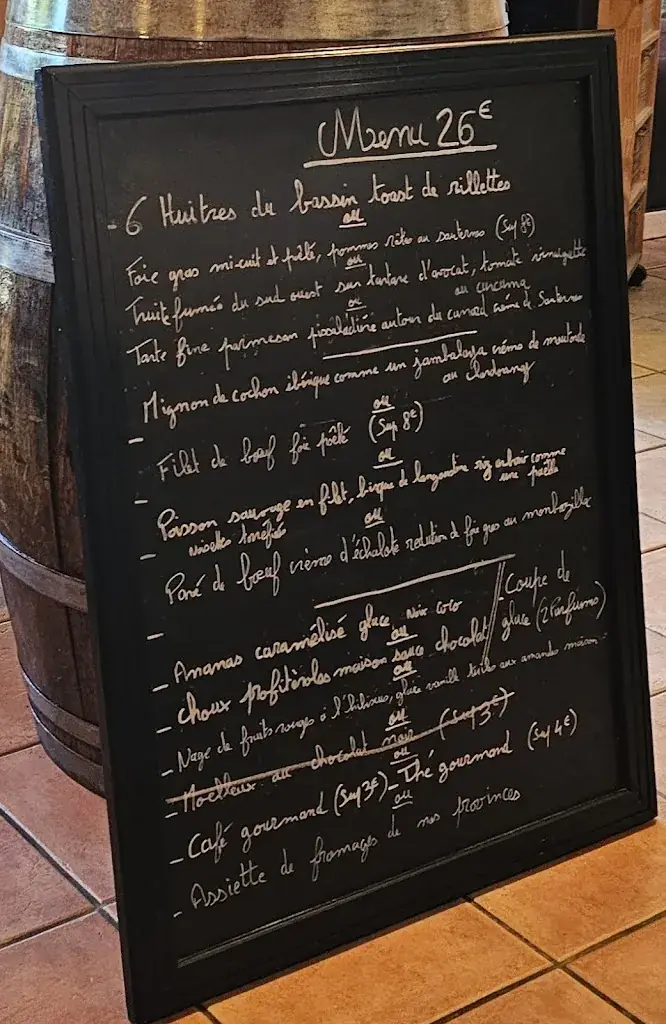 Menu 26€
-6 Huitres du bassin toast de rillettes
ou
Foie gras mi-cuit et poêlé, pommes rôties au sauternes (Sup 8€)
ou
Truite fumée du sud ouest sur tartare d'avocat, tomate vinaigrette
au curcuma
ou
Tarte fine parmesan pissaladière autour du canard crème de Sauternes
- Mignon de cochon ibérique comme un jambalaya crème de moutarde
au chardonnay
ou
- Filet de bœuf foie poêlé (Sup 8€)
ou
- Poisson sauvage en filet, bisque de langoustine riz arborio comme
une paella
noisettes torréfiées
ou
- Pavé de bœuf crème d'échalote reduction de foie gras au monbazillac
- Ananas caramélisé glace Noix coco
// - Coupe de
glace (2 Parfums)
ou
- choux profitéroles maison sauce chocolat
ou
- Nage de fruits rouges à l'hibiscus, glace vanille tuile aux amandes maison -
ou
- Moelleux au chocolat noir (Sup 3€)
ou
- Café gourmand (Sup 3€) - Thé gourmand (Sup 4€)
ou
- Assiette de fromages de nos provinces